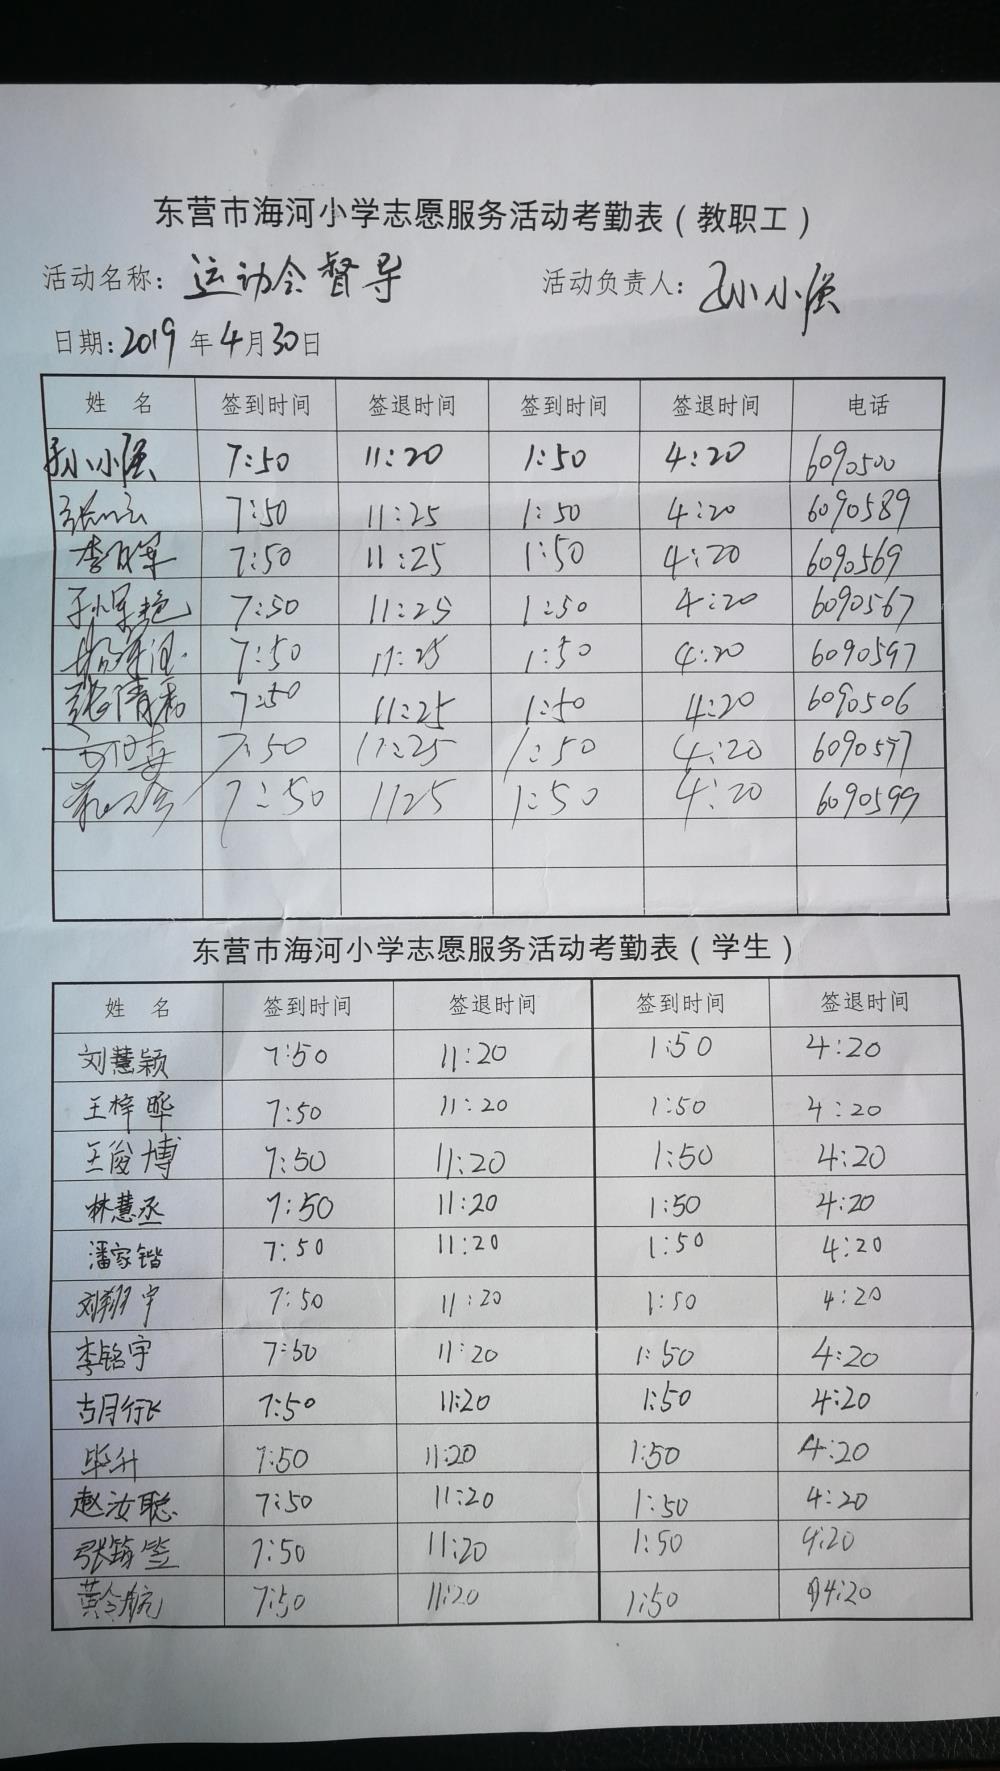 东营市海河小学志愿服务活动考勤表（教职工）
活动名称：运动会督导 活动负责人：孙小强
日期：2019年4月30日
姓 名 签到时间 签退时间 签到时间 签退时间 电话
孙小强 7:50 11:20 1:50 4:20 6090500
7:50 11:25 1:50 4:20 6090589
7:50 11:25 1:50 4:20 6090569
7:50 11:25 1:50 4:20 6090567
7:50 11:25 1:50 4:20 6090597
张清 7:50 11:25 1:50 4:20 6090506
7:50 11:25 1:50 4:20 6090577
7:50 1125 1:50 4:20 6090599
东营市海河小学志愿服务活动考勤表（学生）
姓 名 签到时间 签退时间 签到时间 签退时间
刘慧颖 7:50 11:20 1:50 4:20
王梓晔 7:50 11:20 1:50 4:20
王俊博 7:50 11:20 1:50 4:20
林慧丞 7:50 11:20 1:50 4:20
潘家锴 7:50 11:20 1:50 4:20
刘翔宇 7:50 11:20 1:50 4:20
李铭宇 7:50 11:20 1:50 4:20
胡行 7:50 11:20 1:50 4:20
毕升 7:50 11:20 1:50 4:20
赵汝聪 7:50 11:20 1:50 4:20
张筠笠 7:50 11:20 1:50 4:20
黄令航 7:50 11:20 1:50 4:20